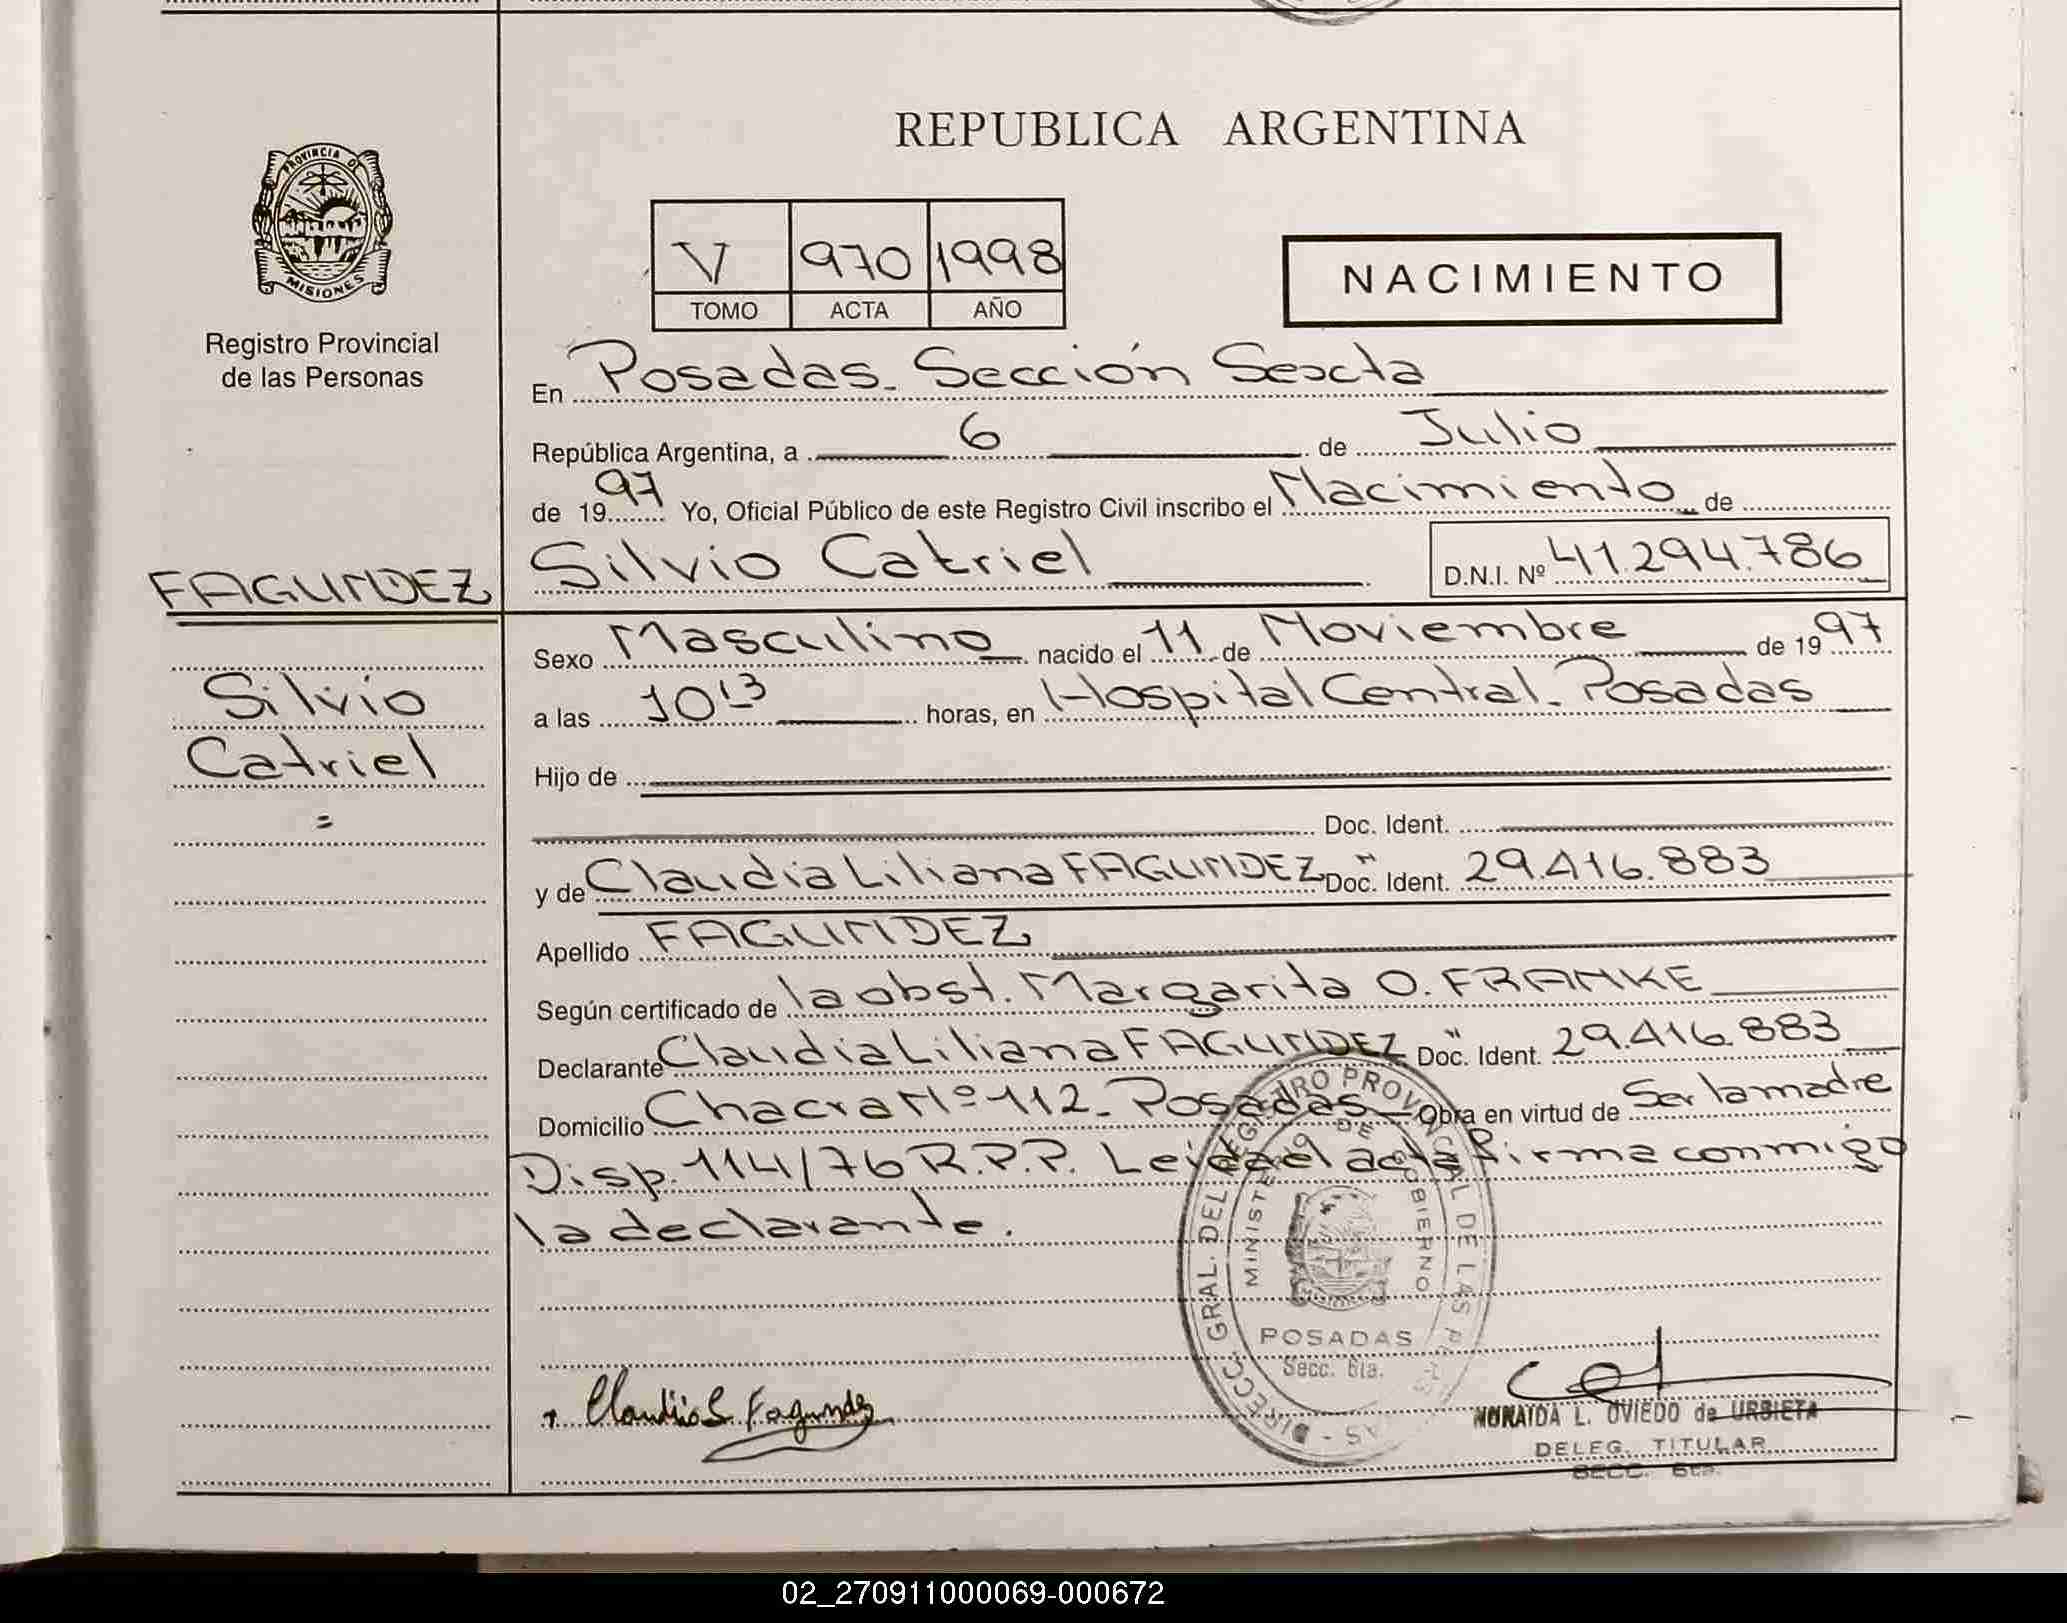 REPUBLICA ARGENTINA
PROVINCIA DE
MISIONES
Registro Provincial
de las Personas
V 970 1998
TOMO ACTA AÑO
NACIMIENTO
En Posadas. Sección Sexta
República Argentina, a 6 de Julio
de 1997 Yo, Oficial Público de este Registro Civil inscribo el Nacimiento de
Silvio Catriel D.N.I. Nº 41.294.786
FAGUNDEZ
Silvio
Catriel
=
Sexo Masculino nacido el 11 de Noviembre de 1997
a las 10:13 horas, en Hospital Central. Posadas
Hijo de
Doc. Ident.
y de Claudia Liliana FAGUNDEZ Doc. Ident. " 29.416.883
Apellido FAGUNDEZ
Según certificado de la obst. Margarita O. FRANKE
Declarante Claudia Liliana FAGUNDEZ Doc. Ident. " 29.416.883
Domicilio Chacra Nº 112. Posadas Obra en virtud de Ser la madre
Disp. 114/76 R.P.P. Leída el acta firma conmigo
la declarante.
DIRECC. GRAL. DEL REGISTRO PROVINCIAL DE LAS
MINISTERIO DE GOBIERNO
POSADAS
Secc. 6ta.
Claudia L. Fagundez
NORAIDA L. OVIEDO de URBIETA
DELEG. TITULAR
SECC. 6ta.
02_270911000069-000672